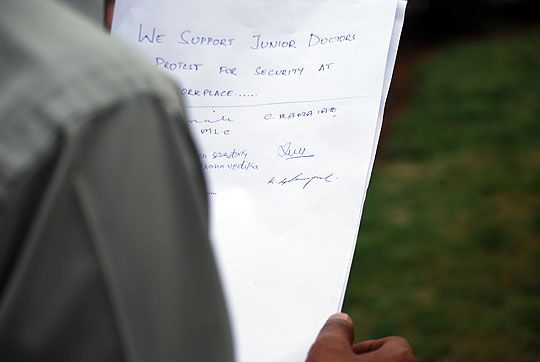 We Support Junior Doctors
Protest for Security at
Workplace.....
C. RAMAIAH
MLC